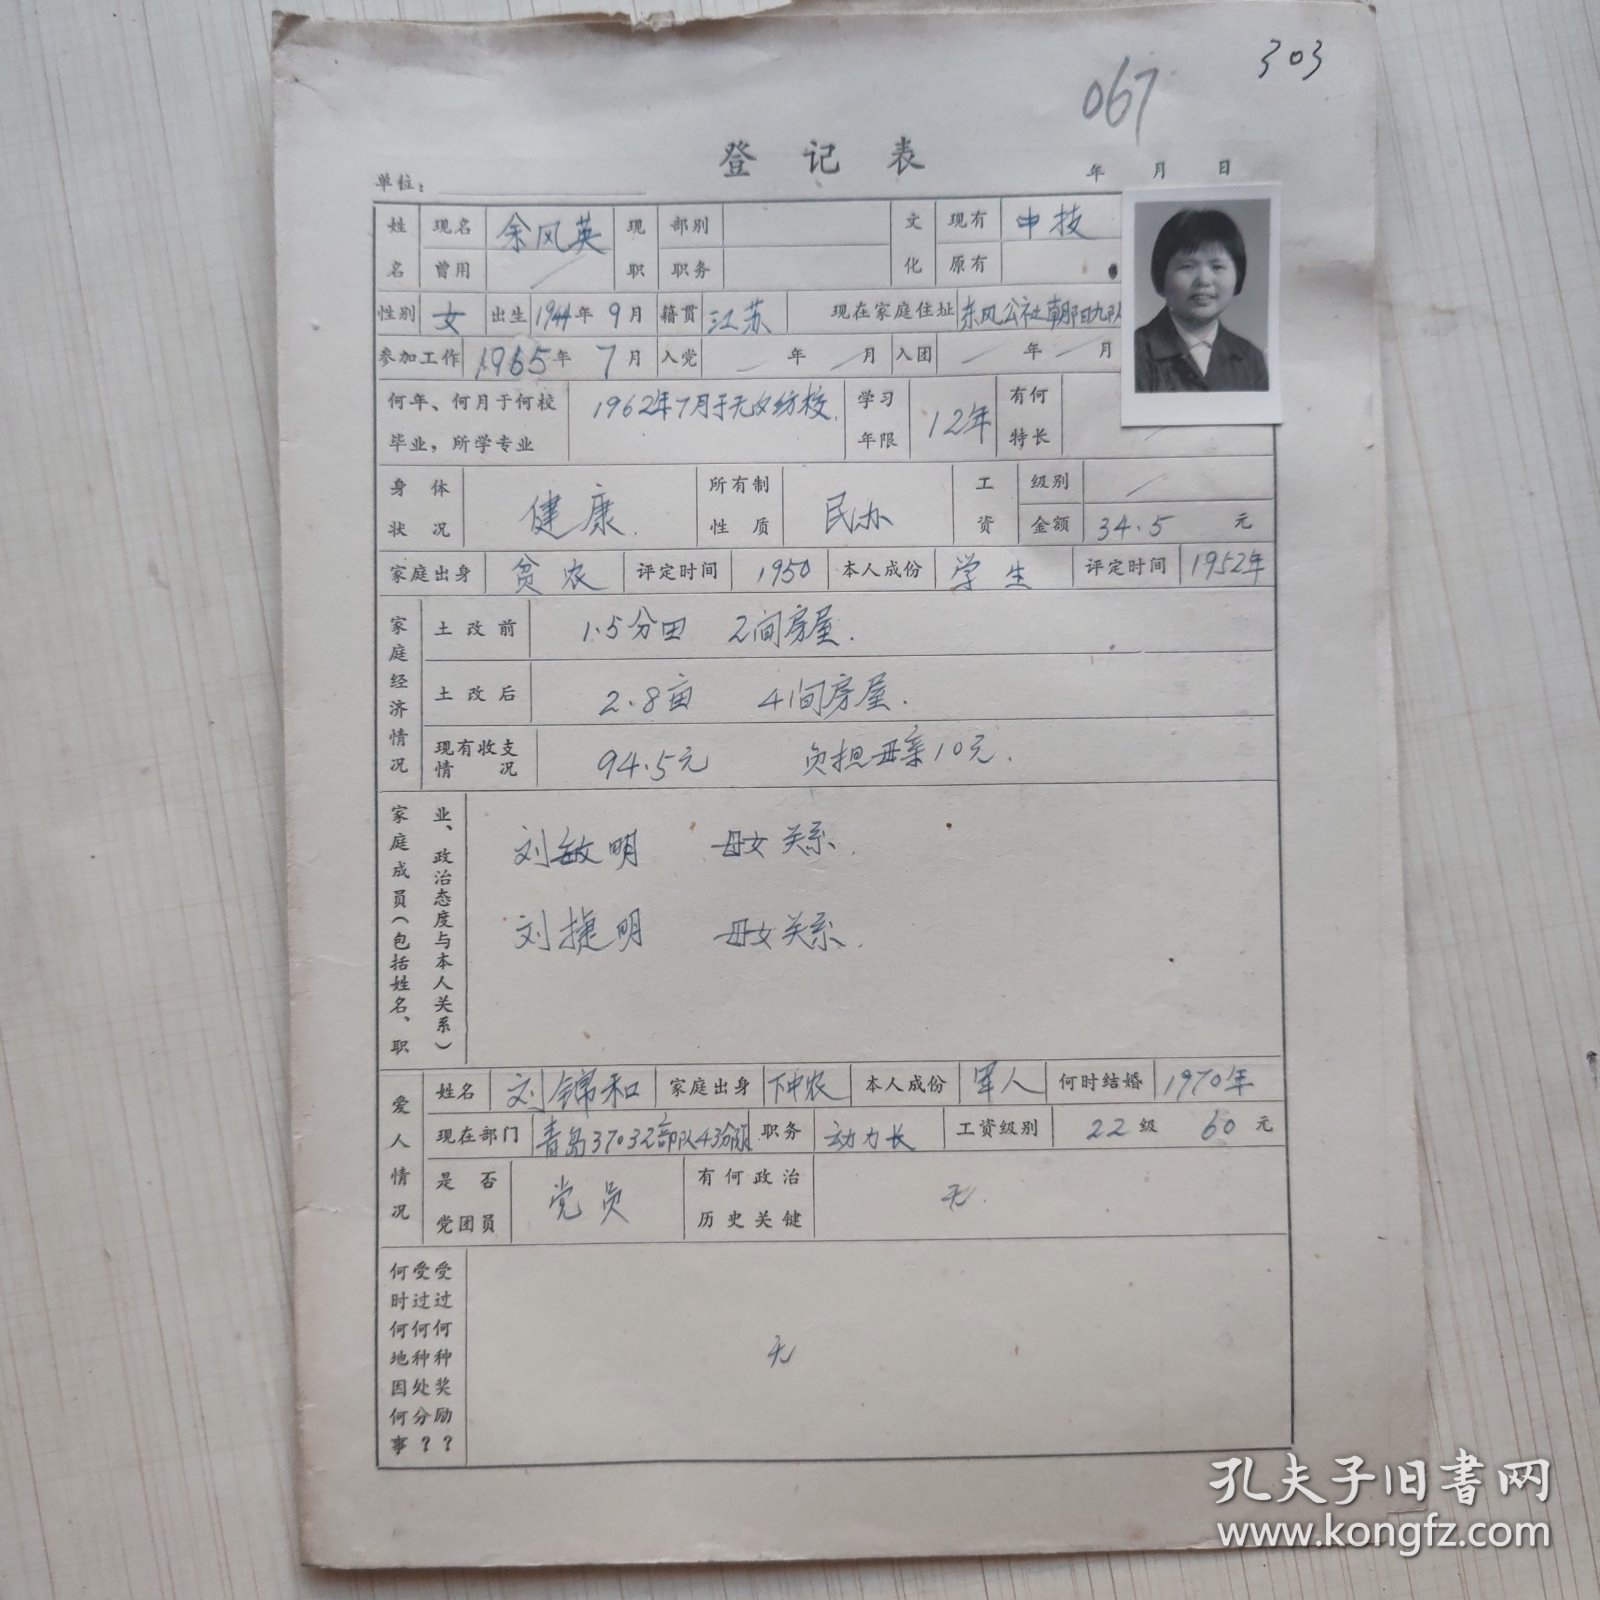 303
067
登记表
单位：
年 月 日
姓名 现名 余风英 现职 部别 文化 现有 中技
曾用 职务 原有
性别 女 出生 1944年 9月 籍贯 江苏 现在家庭住址 东风公社朝阳九队
参加工作 1965年 7月 入党 年 月 入团 年 月
何年、何月于何校 1962年7月于无夕纺校. 学习 12年 有何
毕业，所学专业 年限 特长
身体 健康. 所有制 民办 工资 级别
状况 性质 金额 34.5 元
家庭出身 贫农 评定时间 1950 本人成份 学生 评定时间 1952年
家庭经济情况 土改前 1.5分田 2间房屋.
土改后 2.8亩 4间房屋.
现有收支情况 94.5元 负担母亲10元.
家庭成员（包括姓名、职业、政治态度与本人关系）
刘敏明 母女关系.
刘捷明 母女关系.
爱人情况 姓名 刘锦和 家庭出身 下中农 本人成份 军人 何时结婚 1970年
现在部门 青岛37032部队43分队 职务 动力长 工资级别 22级 60元
是否 党员 有何政治 无.
党团员 历史关键
何时何地因何事受过何种处分？受过何种奖励？
无
孔夫子旧书网
www.kongfz.com